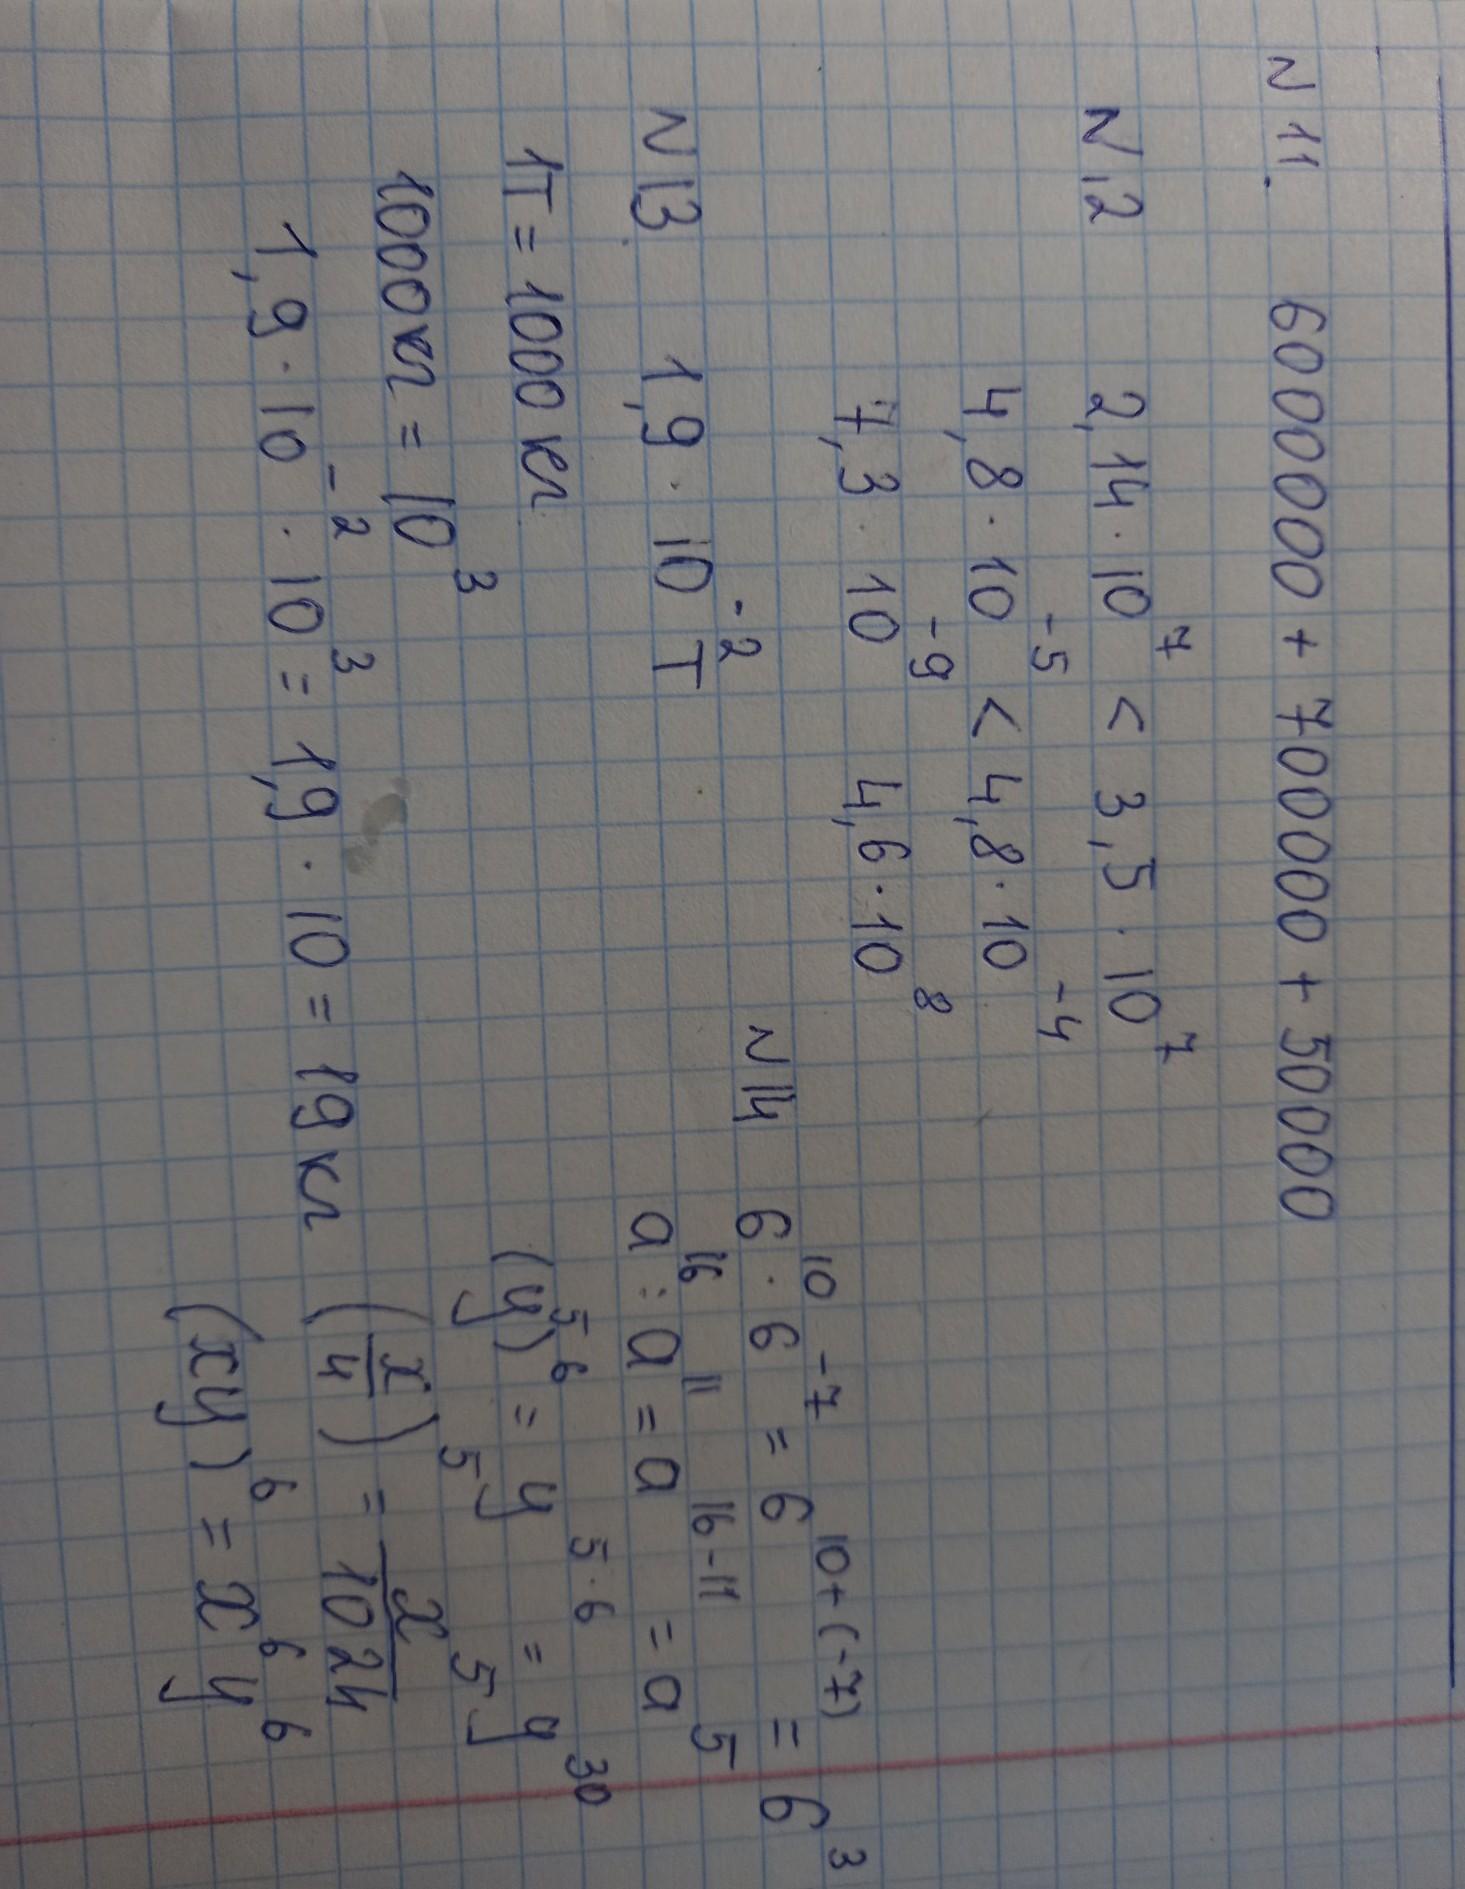 N 11. 6000000 + 700000 + 50000
N 12 2,14 · 10⁷ < 3,5 · 10⁷
4,8 · 10⁻⁵ < 4,8 · 10⁻⁴
7,3 · 10⁻⁹ 4,6 · 10⁸
N 13 1,9 · 10⁻² т
1т = 1000 кг
1000 кг = 10³
1,9 · 10⁻² · 10³ = 1,9 · 10 = 19 кг
N 14 6¹⁰ · 6⁻⁷ = 6¹⁰⁺⁽⁻⁷⁾ = 6³
a¹⁶ : a¹¹ = a¹⁶⁻¹¹ = a⁵
(y⁵)⁶ = y⁵·⁶ = y³⁰
(x/4)⁵ = x⁵/1024
(xy)⁶ = x⁶y⁶